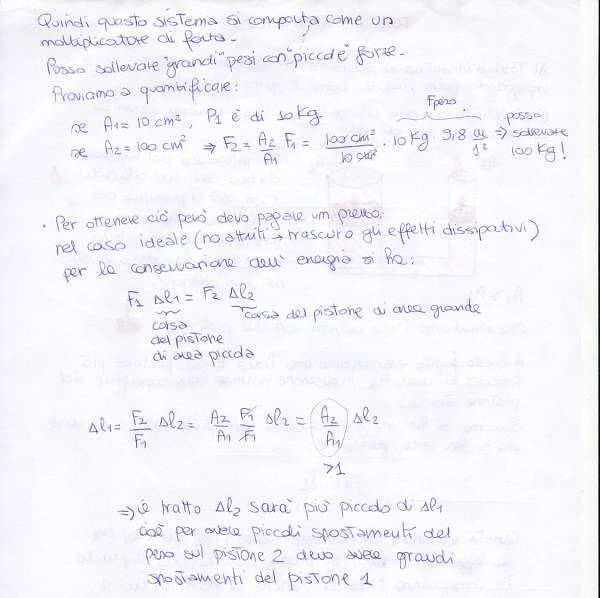 Quindi questo sistema si comporta come un
moltiplicatore di forza.
Posso sollevare "grandi" pesi con "piccole" forze.
Proviamo a quantificare:
Fpeso
se A1 = 10 cm², P1 è di 10 Kg
se A2 = 100 cm² ⇒ F2 = A2/A1 F1 = 100 cm²/10 cm² · 10 Kg · 9,8 m/s² ⇒ posso sollevare 100 Kg!
· Per ottenere ciò però devo pagare un prezzo:
nel caso ideale (no attriti → trascuro gli effetti dissipativi)
per la conservazione dell'energia si ha:
F1 Δl1 = F2 Δl2
corsa del pistone di area grande
corsa
del pistone
di area piccola
Δl1 = F2/F1 Δl2 = A2/A1 F1/F1 Δl2 = A2/A1 Δl2
>1
⇒ il tratto Δl2 sarà più piccolo di Δl1
cioè per avere piccoli spostamenti del
peso sul pistone 2 devo avere grandi
spostamenti del pistone 1